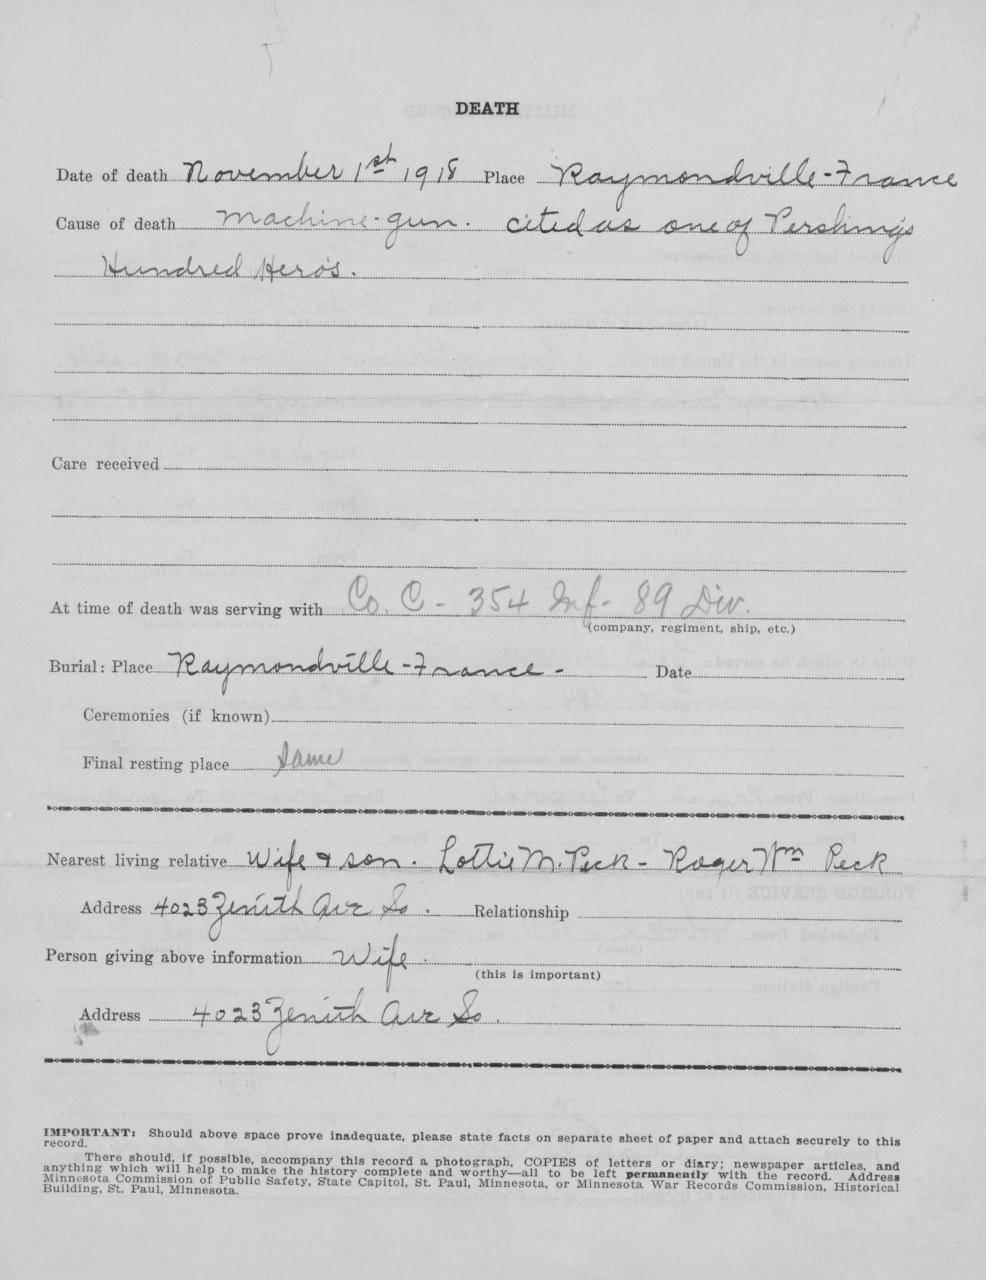 DEATH
Date of death November 1st 1918 Place Raymondville-France
Cause of death machine-gun. cited as one of Pershing's
Hundred Hero's.
Care received
At time of death was serving with Co. C - 354 Inf - 89 Div.
(company, regiment, ship, etc.)
Burial: Place Raymondville-France - Date
Ceremonies (if known)
Final resting place Same
Nearest living relative Wife & son. Lottie M. Peck - Roger Wm Peck
Address 4023 Zenith Ave So. Relationship
Person giving above information Wife.
(this is important)
Address 4023 Zenith Ave So.
IMPORTANT: Should above space prove inadequate, please state facts on separate sheet of paper and attach securely to this
record.
There should, if possible, accompany this record a photograph, COPIES of letters or diary; newspaper articles, and
anything which will help to make the history complete and worthy—all to be left permanently with the record. Address
Minnesota Commission of Public Safety, State Capitol, St. Paul, Minnesota, or Minnesota War Records Commission, Historical
Building, St. Paul, Minnesota.